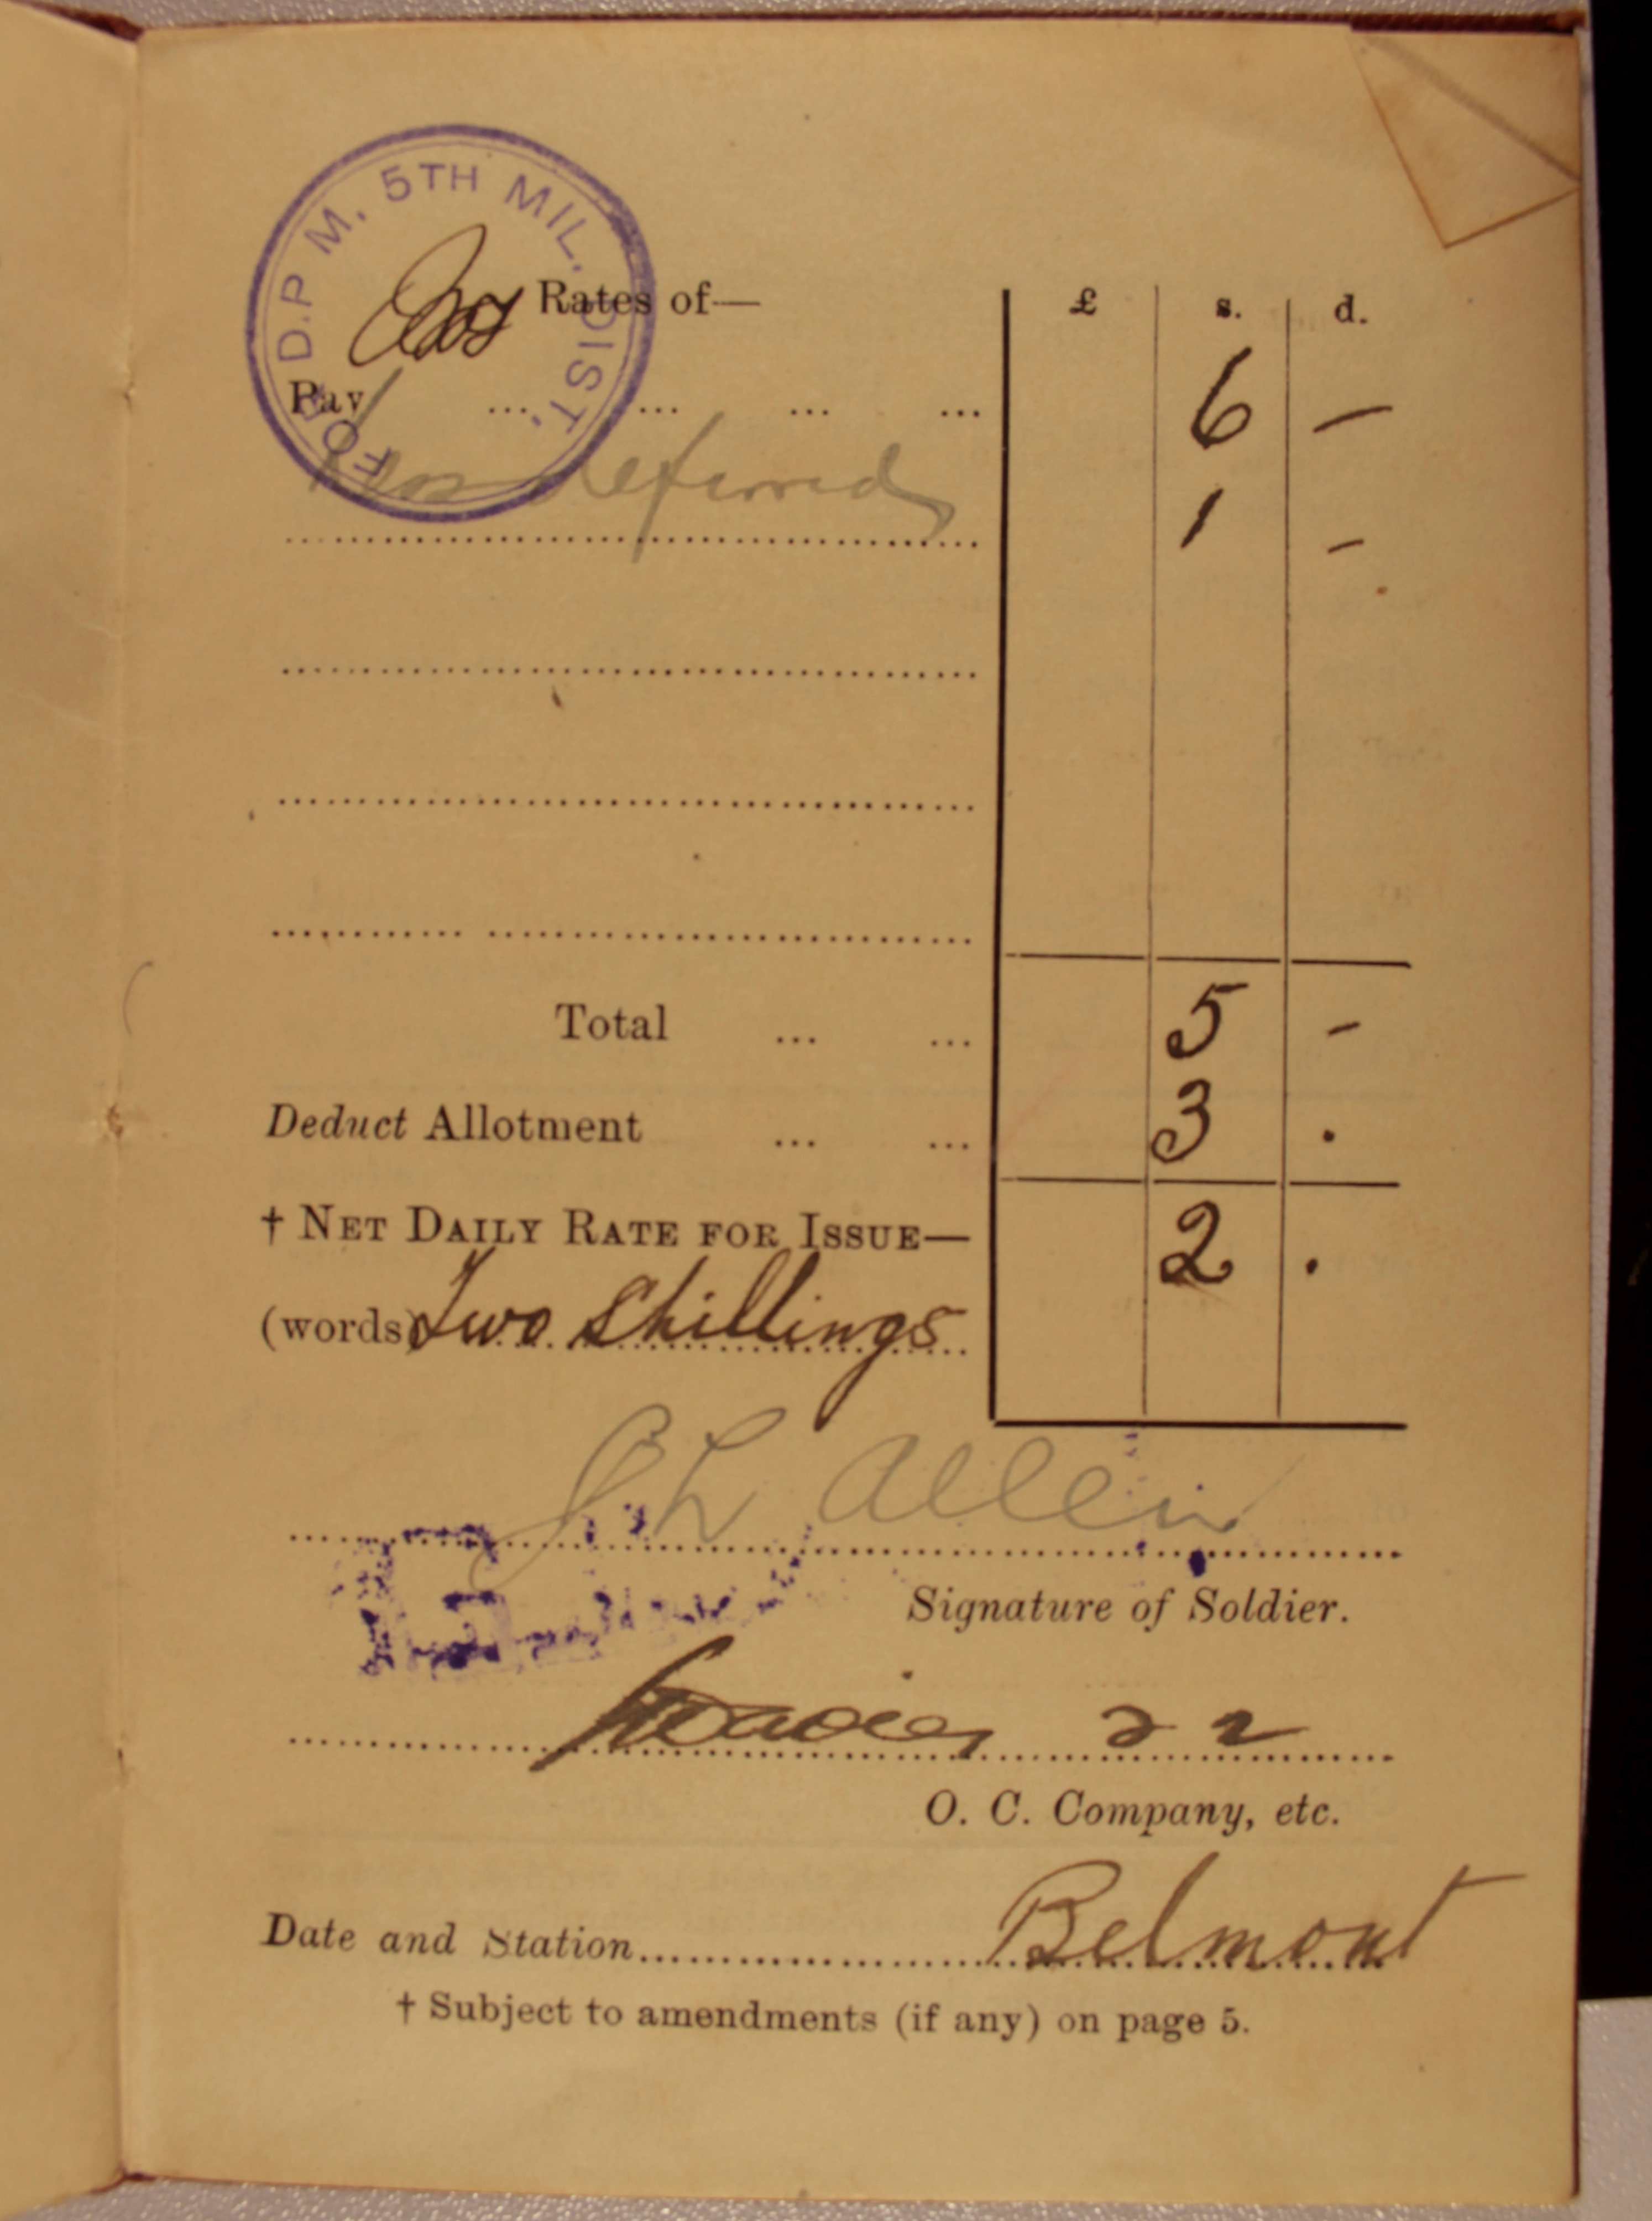 FOR D.P M. 5TH MIL. DIST.
Rates of— £ s. d.
Pay ... ... ... ... 6 —
Less deferred 1 -
Total ... ... 5 -
Deduct Allotment ... ... 3 .
† NET DAILY RATE FOR ISSUE— 2 .
(words) Two Shillings
J L Allen
Signature of Soldier.
O. C. Company, etc.
Date and Station Belmont
† Subject to amendments (if any) on page 5.